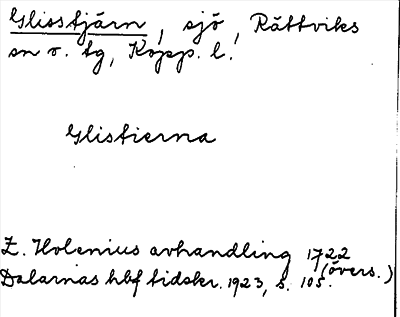 Glisstjärn, sjö, Rättviks
sn o. tg, Kopp. l.
Glistierna
Z. Holenius avhandling 1722
(övers.)
Dalarnas hbf tidskr. 1923, s. 105.